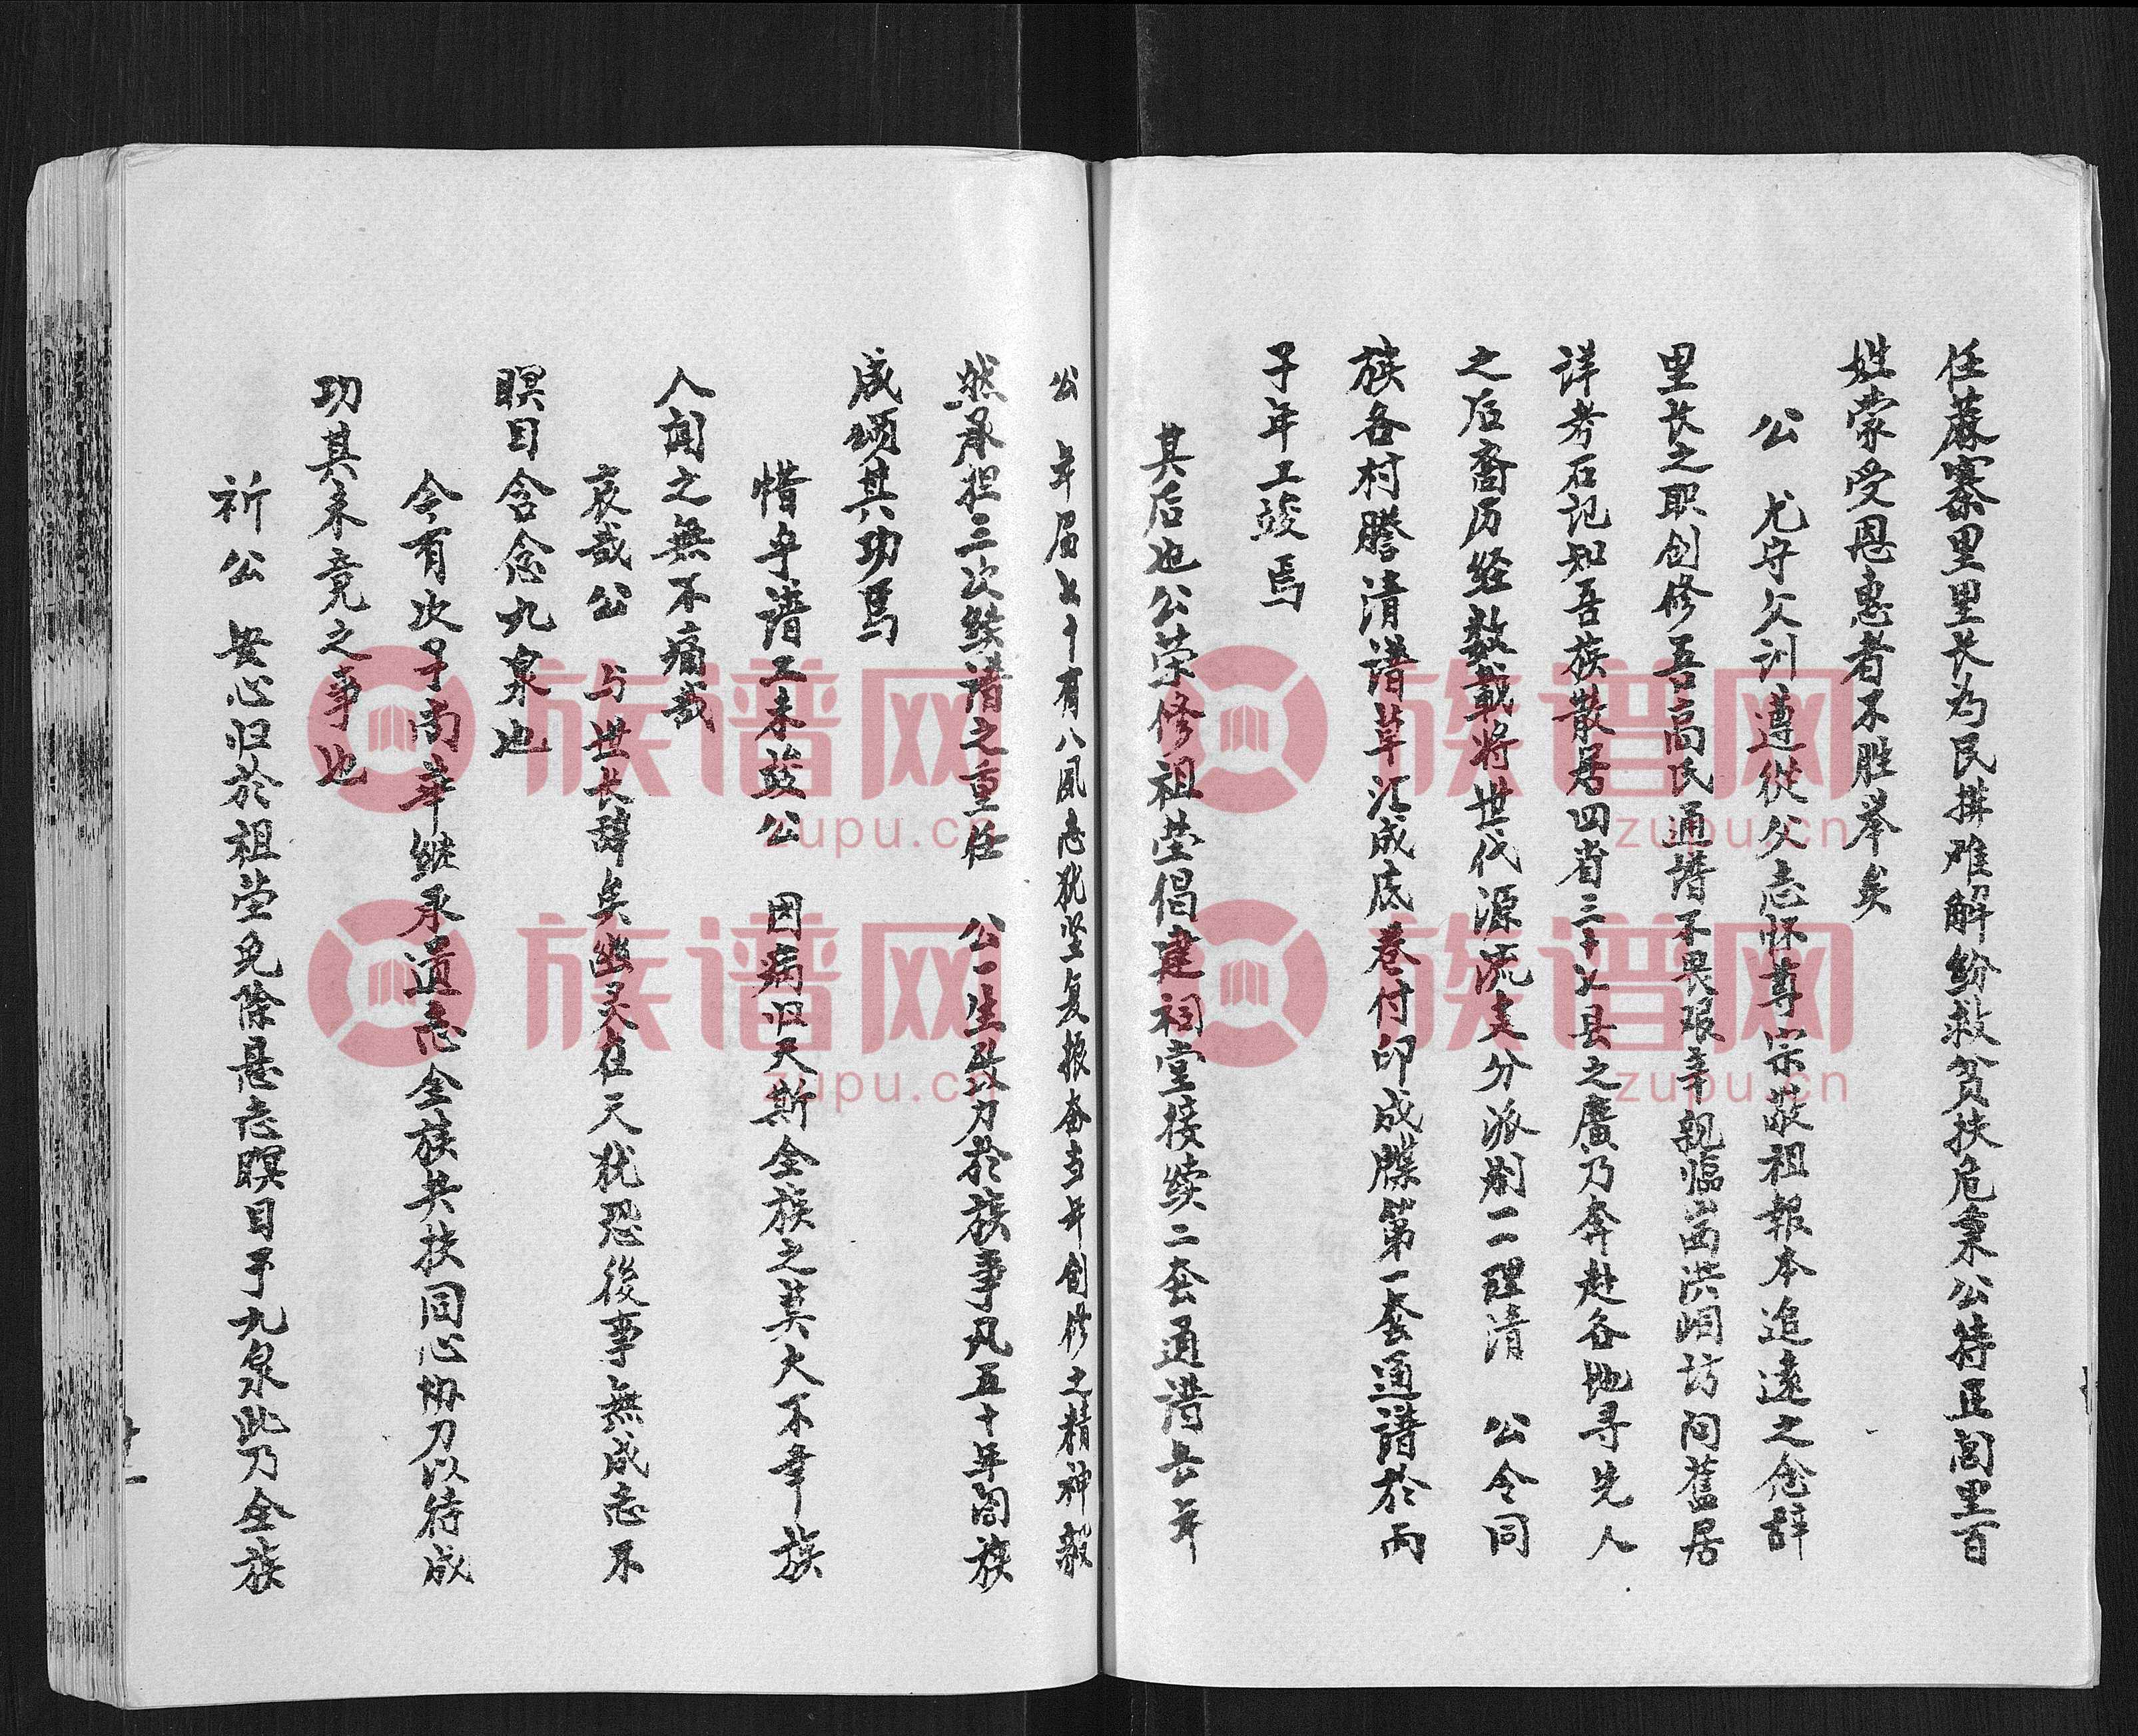 任蔴寨里里长为民排难解纷救贫扶危秉公持正闾里百
姓蒙受恩惠者不胜举矣
公 尤守父训遵従父志怀尊宗敬祖報本追遠之念辞
里长之职创修吾高氏通譜不畏艰辛親临高洪洞访问舊居
详考石记知吾族散居四省三十父县之廣乃奔赴各地寻先人
之后裔历经数載将世代源流支分派别一一理清 公令同
族各村謄清譜草汇成底卷付印成牒第一套通譜於丙
子年工竣焉
其后也公荣修祖茔倡建祠堂接续二套通譜去年
公 年届七十有八夙志犹坚复振奋当年创修之精神毅
然承担三次续譜之重任 公一生致力於族事凡五十年阖族
咸颂其功焉
惜乎譜工未竣公 因病归天斯全族之莫大不幸族
人闻之無不痛哉
哀哉公 与世长辞矣幽灵在天犹恐後事無成志不
瞑目含念九泉也
今有次子尚辛继承遺志全族共扶同心协力以待成
功其未竟之事也
祈公 安心归於祖茔免除悬志瞑目于九泉此乃全族
族谱网
zupu.cn
族谱网
zupu.cn
族谱网
zupu.cn
族谱网
zupu.cn